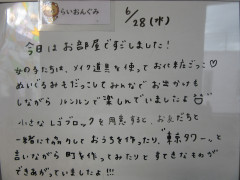 らいおんぐみ
6/28(水)
今日はお部屋ですごしました!
女の子たちは、メイク道具を使ってお仕事ごっこ♡
ぬいぐるみをだっこしてみんなでお出かけも
しながらルンルンで楽しんでいましたよ
小さなレゴブロックを用意すると、お友だちと
一緒に協力しておうちを作ったり、"東京タワー"と
言いながら町を作ってみたりとすてきなものが
できあがっていましたよ!!!